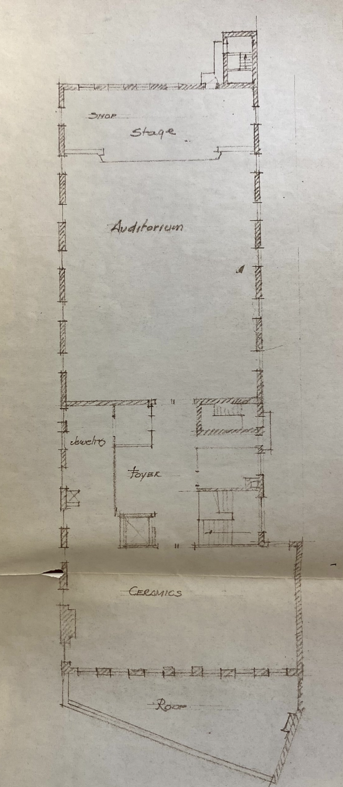 SHOP
Stage
Auditorium
Jewelry
Foyer
CERAMICS
Room